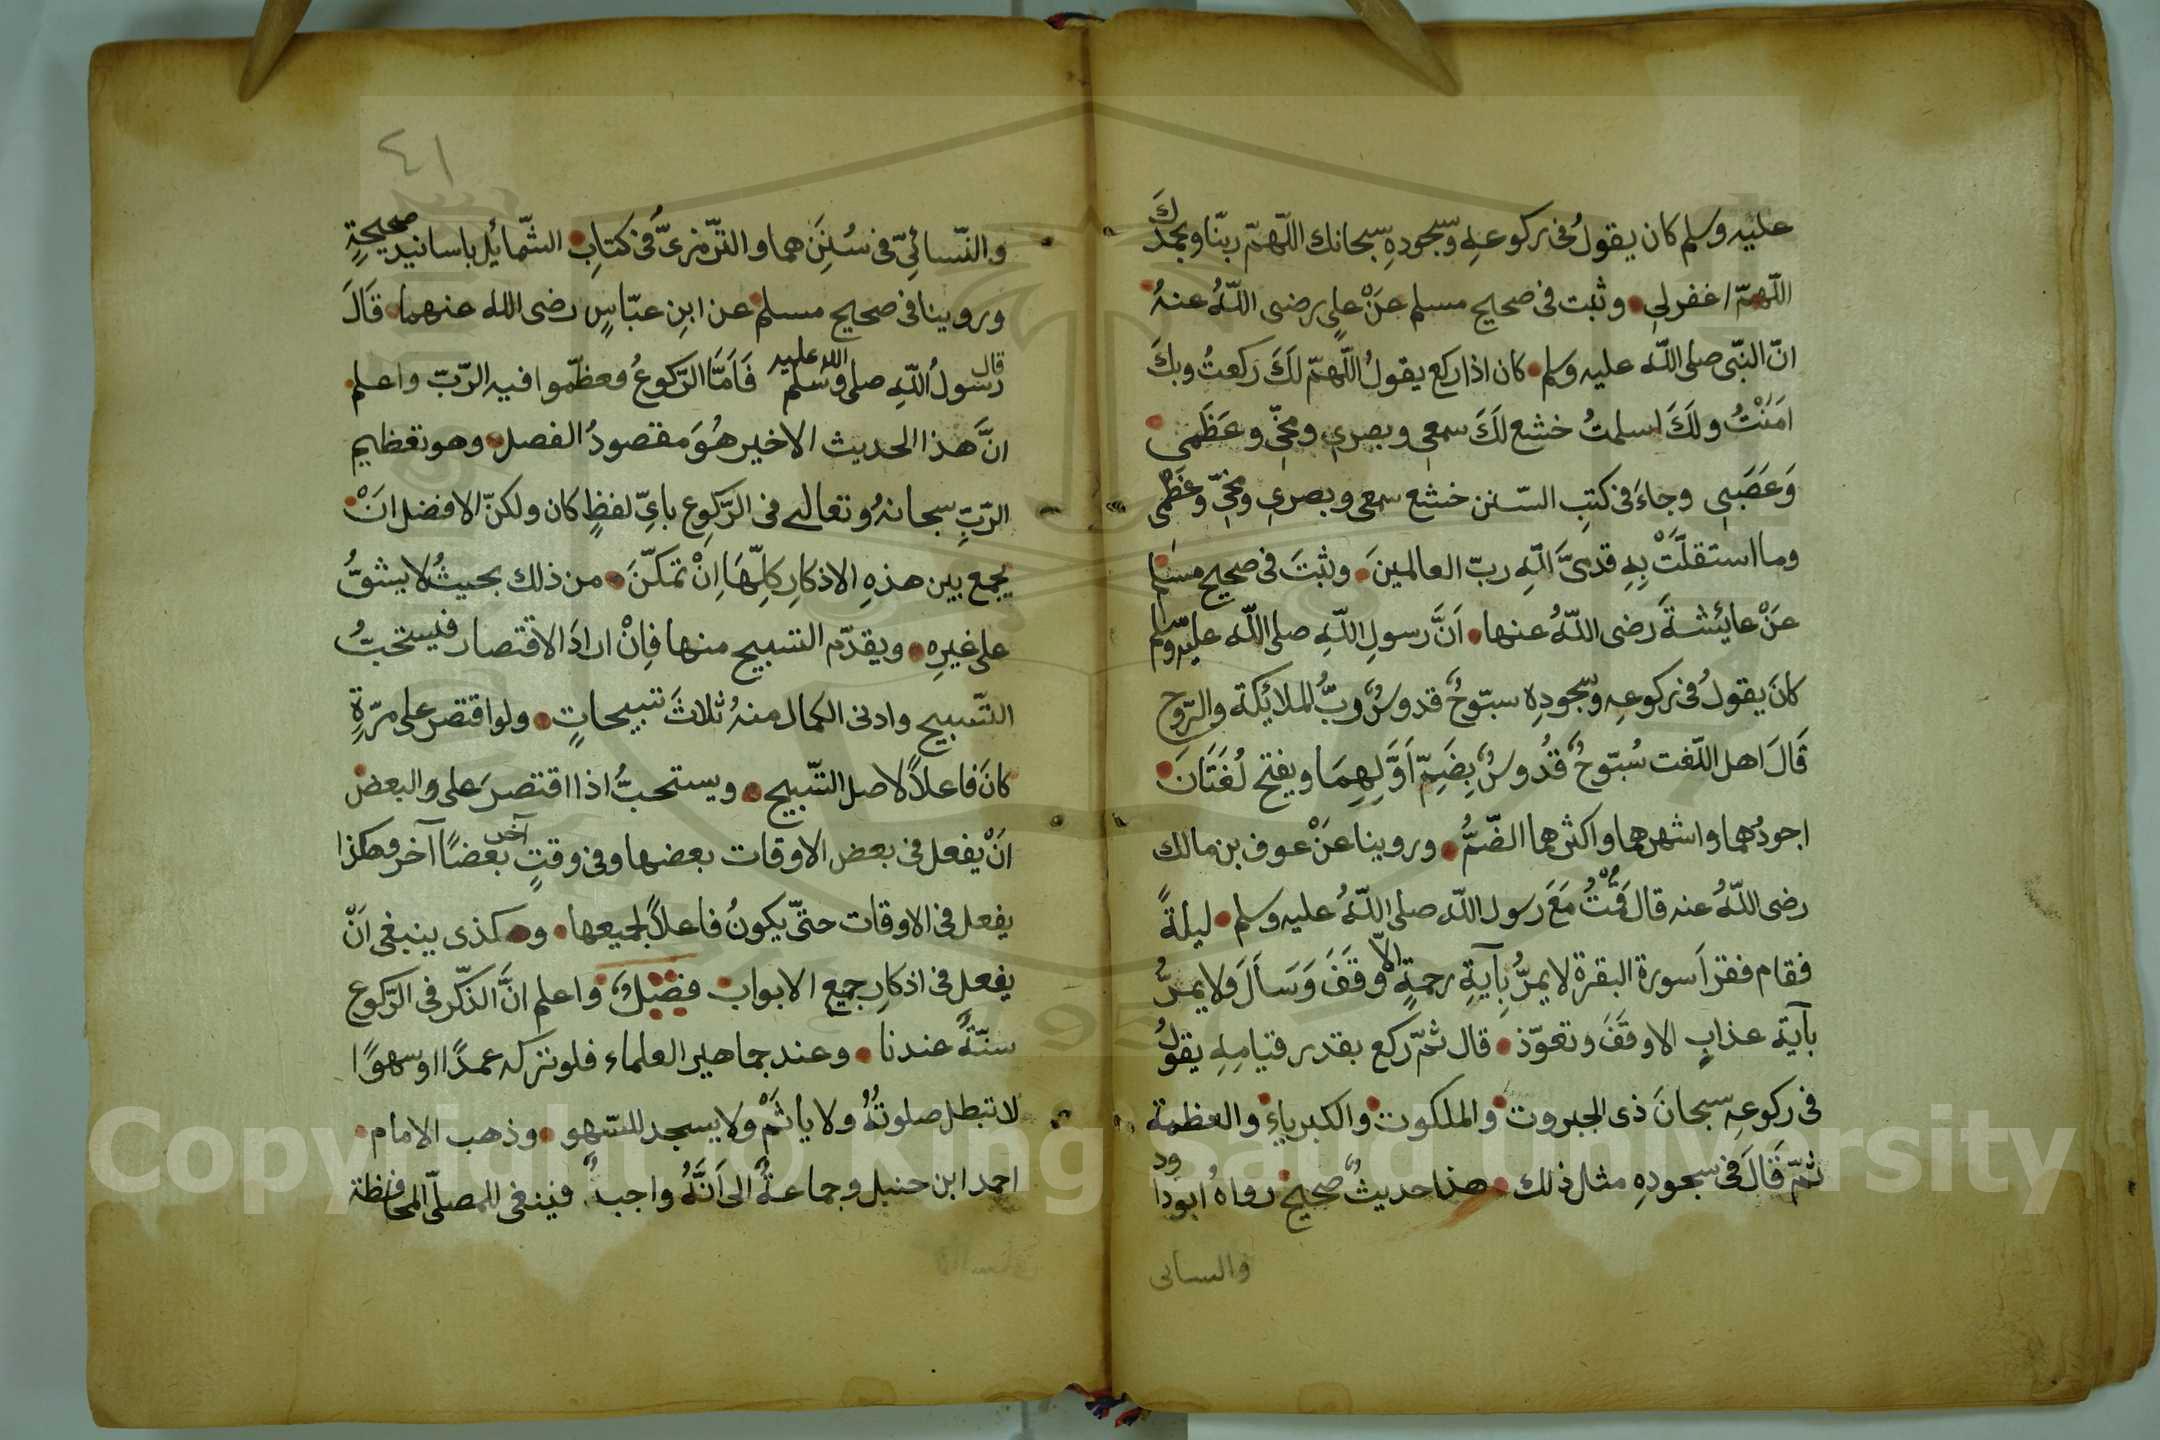 عليه وسلم كان يقولُ فى ركوعهِ وسجودهِ سبحانك اللّهمّ ربّنا وبحمدكَ
اللّهمّ اغفرلي وثبت فى صحيح مسلم عَنْ علىٍ رضى اللّهُ عنهُ
انّ النّبى صلى اللّه عليه وسلم كان اذا ركع يقولُ اللّهمّ لَكَ ركعتُ وبكَ
امَنْتُ ولَكَ اسلمتُ خشع لَكَ سمعى وبصري ومخّي وعَظَمى
وَعَصَبي وجاءَ فى كتبِ السّنن خشع سمعى وبصري ومخّي وعَظْمى
وما استقلّتْ بِهِ قدمىَّ اللّهِ ربّ العالمينَ وثبتَ فى صحيح مسلم
عَنْ عايئشةَ رضى اللّهُ عنها اَنَّ رسولِ اللّهِ صلى اللّه عليه وسلم
كانَ يقولُ فى ركوعهِ وسجودِه سبّوحٌ قدوسٌ ربُّ الملائكة والرّوح
قَالَ اهل اللّغت سُبّوحٌ قُدوسٌ بِضَمِّ اَوَّلِهِمَا وبفتح لُغَتَانَ
اجودُهما واشهرهما واكثرهما الضّمُّ وروينا عَنْ عوف بن مالك
رضى اللّهُ عنه قال قُمْتُ مَعَ رسول اللّه صلى اللّهُ عليه وسلم ليلةً
فقام فقرَاَ سورة البقرة لا يمرُّ بِآيةِ رحمةٍ الاّ وقَفَ وَسَاَلَ ولا يمرُّ
بآية عذابٍ الا وقَفَ وتعوّذ قال ثمّ ركع بقدر قيامِهِ يقولُ
فى ركوعهِ سبحانَ ذى الجبروت والملكوت والكبرياءِ والعظمة
ثمّ قَالَ فى سجودهِ مثل ذلك هذا حديثٌ صحيحٌ رواهُ ابوداود
والنسائى
٤١
والنّسائِيّ فى سُنَنِهما والتّرمزىُّ فى كتابِ الشّمائل باسانيد صحيحةٍ
وروينا فى صحيح مسلم عن ابنِ عبّاسٍ رضى الله عنهما قَالَ
قال رسولُ اللّهِ صلى الله عليه وسلم فَاَمَّا الرّكوعُ فعظّموا فيه الرّبّ واعلم
انَّ هذا الحديث الاخير هُوَ مقصودُ الفصل وهو تعظيم
الرّبِّ سبحانهُ وتعالى فى الرّكوعِ بايِّ لفظٍ كان ولكنّ الافضل انَْ
يجمع بين هذهِ الاذكارِ كلِّهَا اِنْ تمكّنَ من ذلك بحيثُ لا يشقُّ
على غيرِه ويقدّم التسبيح منها فاِنْ ارادَ الاقتصار فيستحبُّ
التّسبيح وادنى الكمال منهُ ثلاثَ تسبيحاتٍ ولو اقتصر على مرّةٍ
كانَ فاعلاً لاصل التّسبيح ويستحبُّ اذا اقتصرَ على والبعض
انْ يفعل فى بعض الاوقات بعضها وفى وقتٍ آخر بعضًا آخر وهكذا
يفعل فى الاوقات حتّى يكونُ فاعلاً لجميعها وهكذى ينبغى انْ
يفعل فى اذكارِ جميع الابواب فصلٌ واعلم انَّ الذّكر فى الرّكوع
سنّةٌ عندنا وعند جماهير العلماء فلو تركه عمدًا او سهوًا
لا تبطل صلوتُهُ ولا يأثَمْ ولا يسجد للسّهو وذهب الامام
احمد ابن حنبل وجماعةٌ الى اَنَّهُ واجبٌ فينبغى للمصلّى المحافظة
Copyright © King Saud University